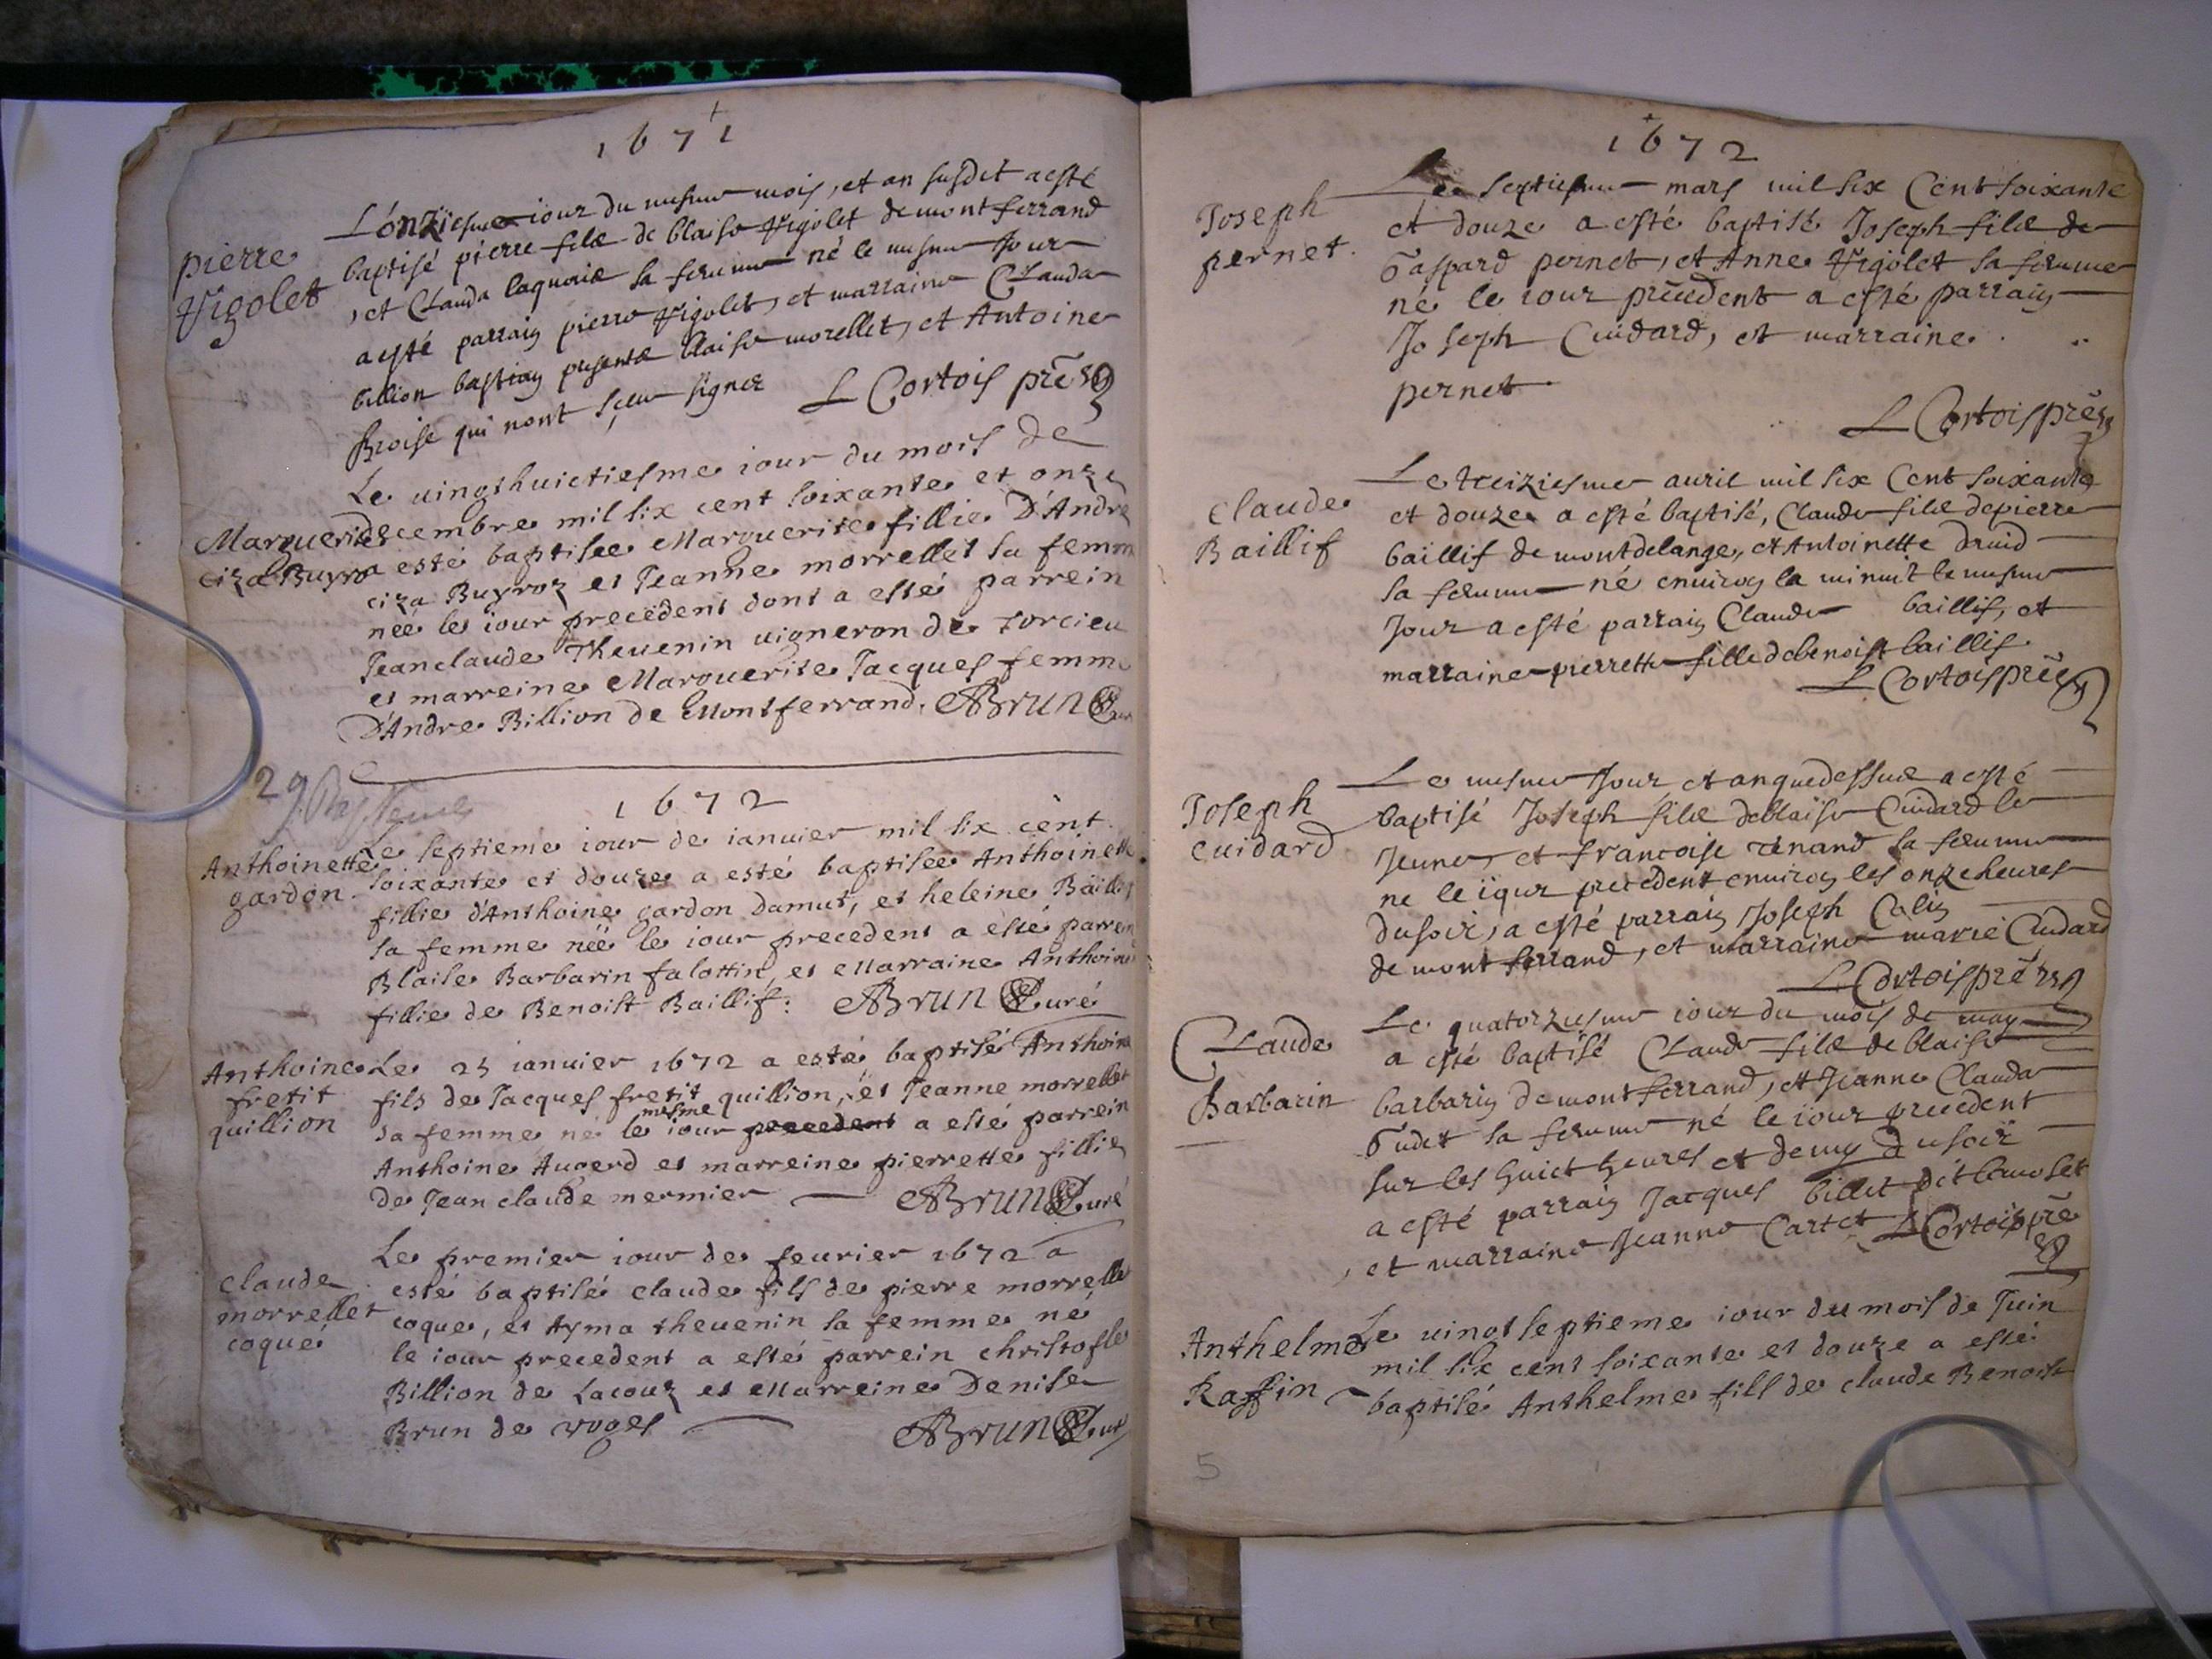 1671
L'onziesme iour du mesme mois, et an susdit a esté
pierre
Vigolet
baptisé pierre filz de blaise Vigolet de montferrand
, et Clauda laquaiz sa femme né le mesme Jour
a esté parrain pierre Vigolet, et marraine Clauda
billion bastian presentz blaise morellet, et Antoine
Broise qui n'ont sceu signer L Cortois prë
Le uingthuictiesme iour du mois de
Marguerite
ciza Buyroz
decembre mil six cent soixante et onze
a esté baptisee Marguerite fillie D'André
ciza Buyroz et Jeanne morrellet sa femme
née le iour precedent dont a esté parrein
Jeanclaude Theuenin uigneron de torcieu
et marreine Marguerite Jacques femme
D'Andre Billion de Montferrand. ABrun Curé
29
1672
Anthoinette
gardon.
Le septieme iour de ianuier mil six cent
soixante et douze a esté baptisee Anthoinette
fillie d'Anthoine gardon Damut, et heleine Baillif
sa femme née le iour precedent a esté parrein
Blaise Barbarin falottin, et Marraine Anthoine
fillie de Benoist Baillif: ABrun Curé
Anthoine
fretit
quillion
Le 25 ianuier 1672 a esté baptisé Anthoine
fils de Jacques fretit quillion, et Jeanne morrellet
sa femme né le mesme iour precedent a esté parrein
Anthoine Augerd et marreine pierrette fillie
de Jean claude mermier ABrun Curé
claude
morrellet
coque
Le premier iour de feurier 1672 a
esté baptisé claude fils de pierre morrellet
coque, et Ayma theuenin sa femme né
le iour precedent a esté parrein christofle
Billion de Lacouz et Marreine Denise
Brun de vroges ABrun Curé
1672
Joseph
pernet.
Le septiesme mars mil six Cent soixante
et douze a esté baptisé Joseph filz de
Gaspard pernet, et Anne Vigolet sa femme
né le iour precedent a esté parrain
Joseph Cuidard, et marraine
pernet.
L Cortois prë
Claude
Baillif
Le treiziesme auril mil six Cent soixante
et douze a esté baptisé, Claude filz de pierre
baillif de montdelange, et Antoinette druid
sa femme né enuiron la minuit le mesme
Jour a esté parrain Claude baillif, et
marraine pierrette fille de benoist baillif.
L Cortois prë
Joseph
cuidard
Le mesme Jour et an que dessus a esté
baptisé Joseph filz de blaise Cuidard le
Jeune, et francoise renand sa femme
né le iour precedent enuiron les onze heures
du soir, a esté parrain Joseph Colin
de montferrand, et marraine marie Cuidard
L Cortois prë
Claude
Barbarin
Le quatorziesme iour du mois de may
a esté baptisé Claude filz de blaise
barbarin de montferrand, et Jeanne Clauda
Gudet sa femme né le iour precedent
sur les huict heures et demy du soir
a esté parrain Jacques billet dit
, et marraine Jeanne Cartet L Cortois prë
Anthelme
Raffin
Le uingt septieme iour du mois de Juin
mil six cent soixante et douze a esté
baptisé Anthelme fils de claude Benoist
5